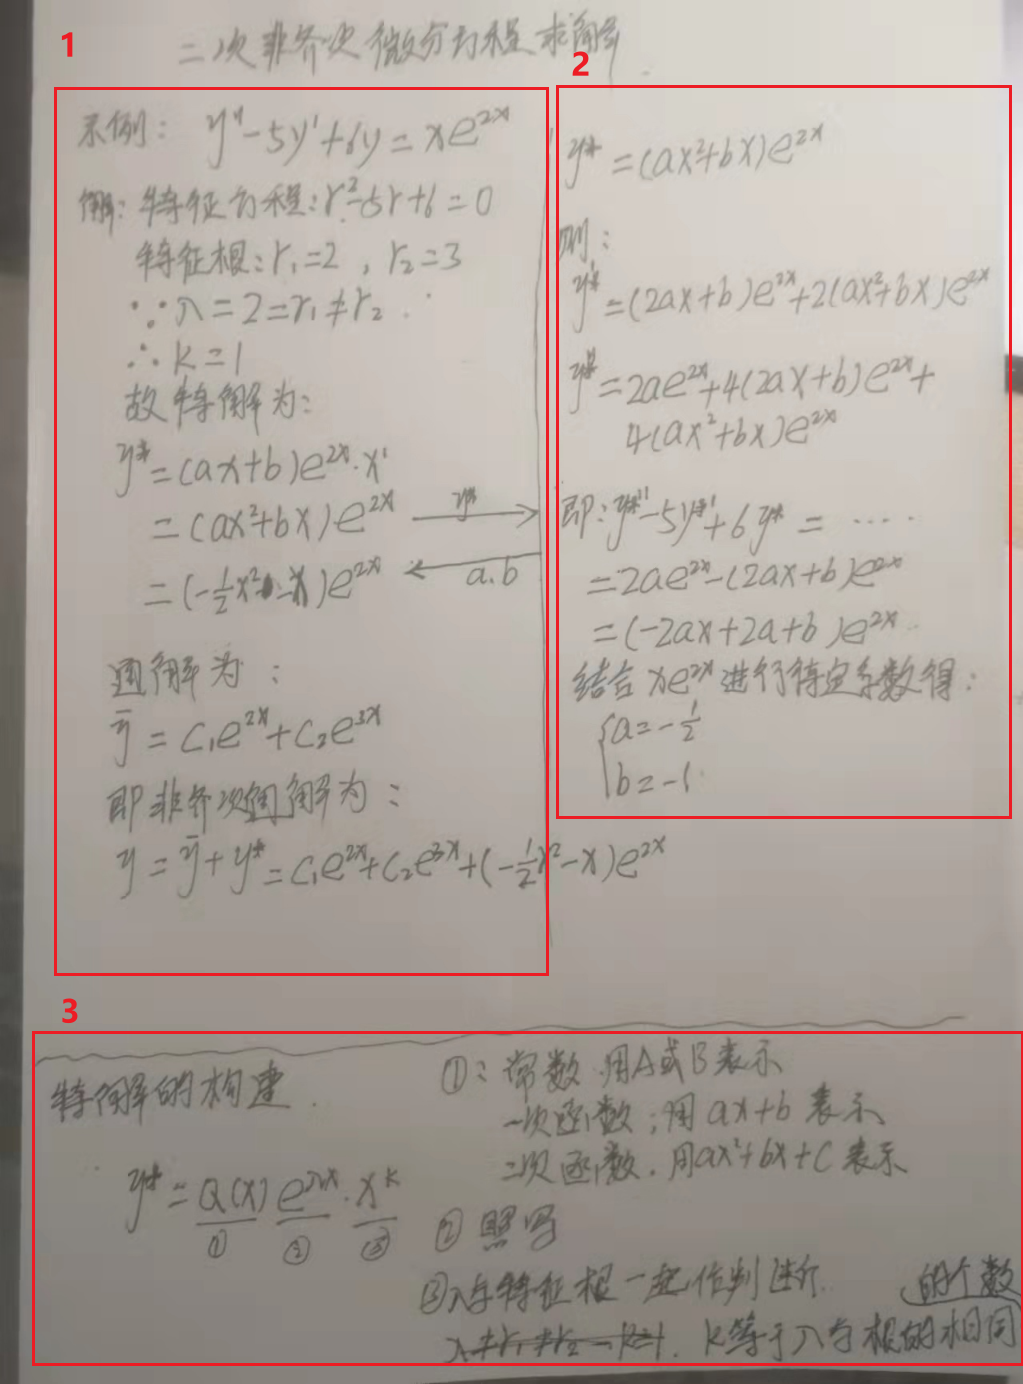 二次非齐次微分方程求解
1
示例: y''-5y'+6y=xe^{2x}
解: 特征方程: r²-5r+6=0
特征根: r₁=2, r₂=3
∵ λ=2=r₁≠r₂
∴ k=1
故特解为:
y*=(ax+b)e^{2x}·x¹
=(ax²+bx)e^{2x}
y*
=(-1/2x²-x)e^{2x}
a.b
通解为:
ȳ=C₁e^{2x}+C₂e^{3x}
即非齐次通解为:
y=ȳ+y*=C₁e^{2x}+C₂e^{3x}+(-1/2x²-x)e^{2x}
2
y*=(ax²+bx)e^{2x}
则:
y*'=(2ax+b)e^{2x}+2(ax²+bx)e^{2x}
y*''=2ae^{2x}+4(2ax+b)e^{2x}+
4(ax²+bx)e^{2x}
即: y*''-5y*'+6y*=····
=2ae^{2x}-(2ax+b)e^{2x}
=(-2ax+2a+b)e^{2x}
结合xe^{2x}进行待定系数得:
{a=-1/2
b=-1
3
特解的构建.
y*=Q(x)e^{λx}·x^k
① ② ③
①: 常数.用A或B表示
一次函数;用ax+b表示
二次函数.用ax²+bx+C表示
② 照写
③λ与特征根一起作判断.
λ≠r₁≠r₂ - k=1. k等于λ与根的相同的个数